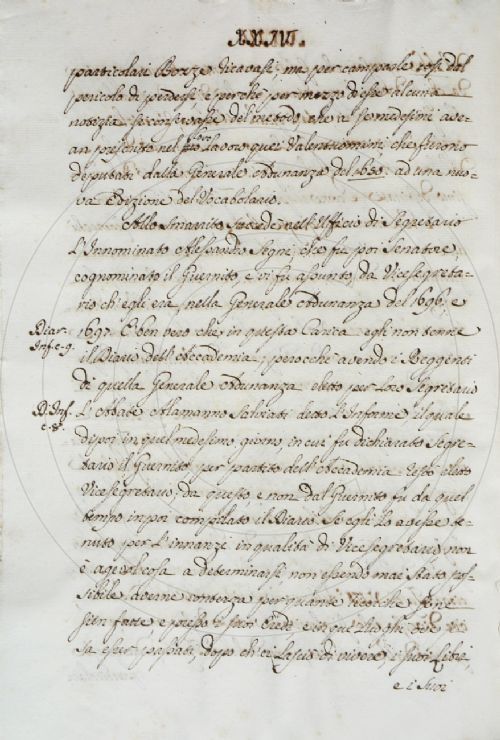 XXIII.
particolari Bozze ricavasi; ma per camparle così dal
pericolo di perdersi e perchè per mezzo di esse alcuna
notizia si conservasse del metodo che a se medesimi ave-
an prescritto nel loro Lavoro quei Valentuomini che furono
deputati dalla Generale Adunanza del 1650. ad una nuo-
va Edizione del Vocabolario.
Allo Smarrito succede nell'Uffizio di Segretario
L'Innominato Alessandro Segni, che fu poi Senatore,
cognominato il Guernito, e vi fu assunto, da Vicesegreta-
rio ch'egli era, nella Generale Adunanza del 1696, e
Diar.
Inf. c. 9.
1697. È ben vero che in questa Carica egli non tenne
il Diario dell'Accademia; perocchè avendo i Reggenti
di quella Generale Adunanza eletto per loro Segretario
D. Inf.
c. 8.
L'Abate Alamanno Salviati detto L'Informe il quale
dipoi in quel medesimo giorno, in cui fu dichiarato Segre-
tario il Guernito per partito dell'Accademia restò eletto
Vicesegretario; da questo, e non dal Guernito fu da quel
tempo in poi compilato il Diario. Se egli lo avesse te-
nuto per l'innanzi in qualità di Vicesegretario non
è agevol cosa a determinarsi non essendo mai stato pos-
sibile averne contezza per quante ricerche siensi
fatte appresso i suoi Eredi
passati, dopo ch'ei lasciò di vivere, i suoi Libri,
e i suoi